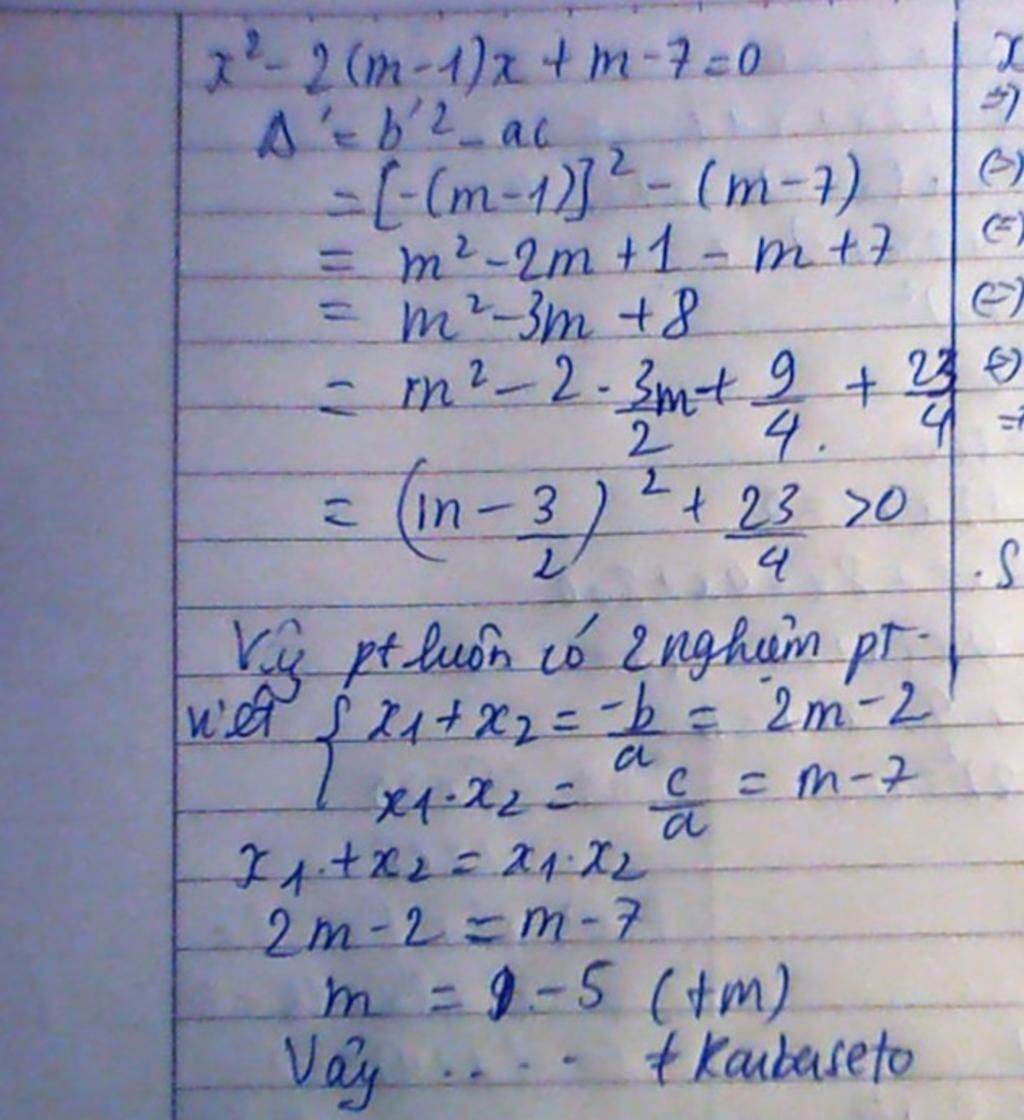 x² - 2(m-1)x + m-7=0
Δ' = b'2 - ac
= [-(m-1)]² - (m-7)
= m² - 2m + 1 - m + 7
= m² - 3m + 8
= m² - 2 · 3/2 m + 9/4 + 23/4
= (m - 3/2)² + 23/4 >0
Vậy pt luôn có 2 nghiệm pt
viét { x1 + x2 = -b/a = 2m - 2
x1 · x2 = c/a = m - 7
x1 + x2 = x1 · x2
2m - 2 = m - 7
m = -5 (tm)
Vậy ....
x
=>
(=)
(=)
(=)
S